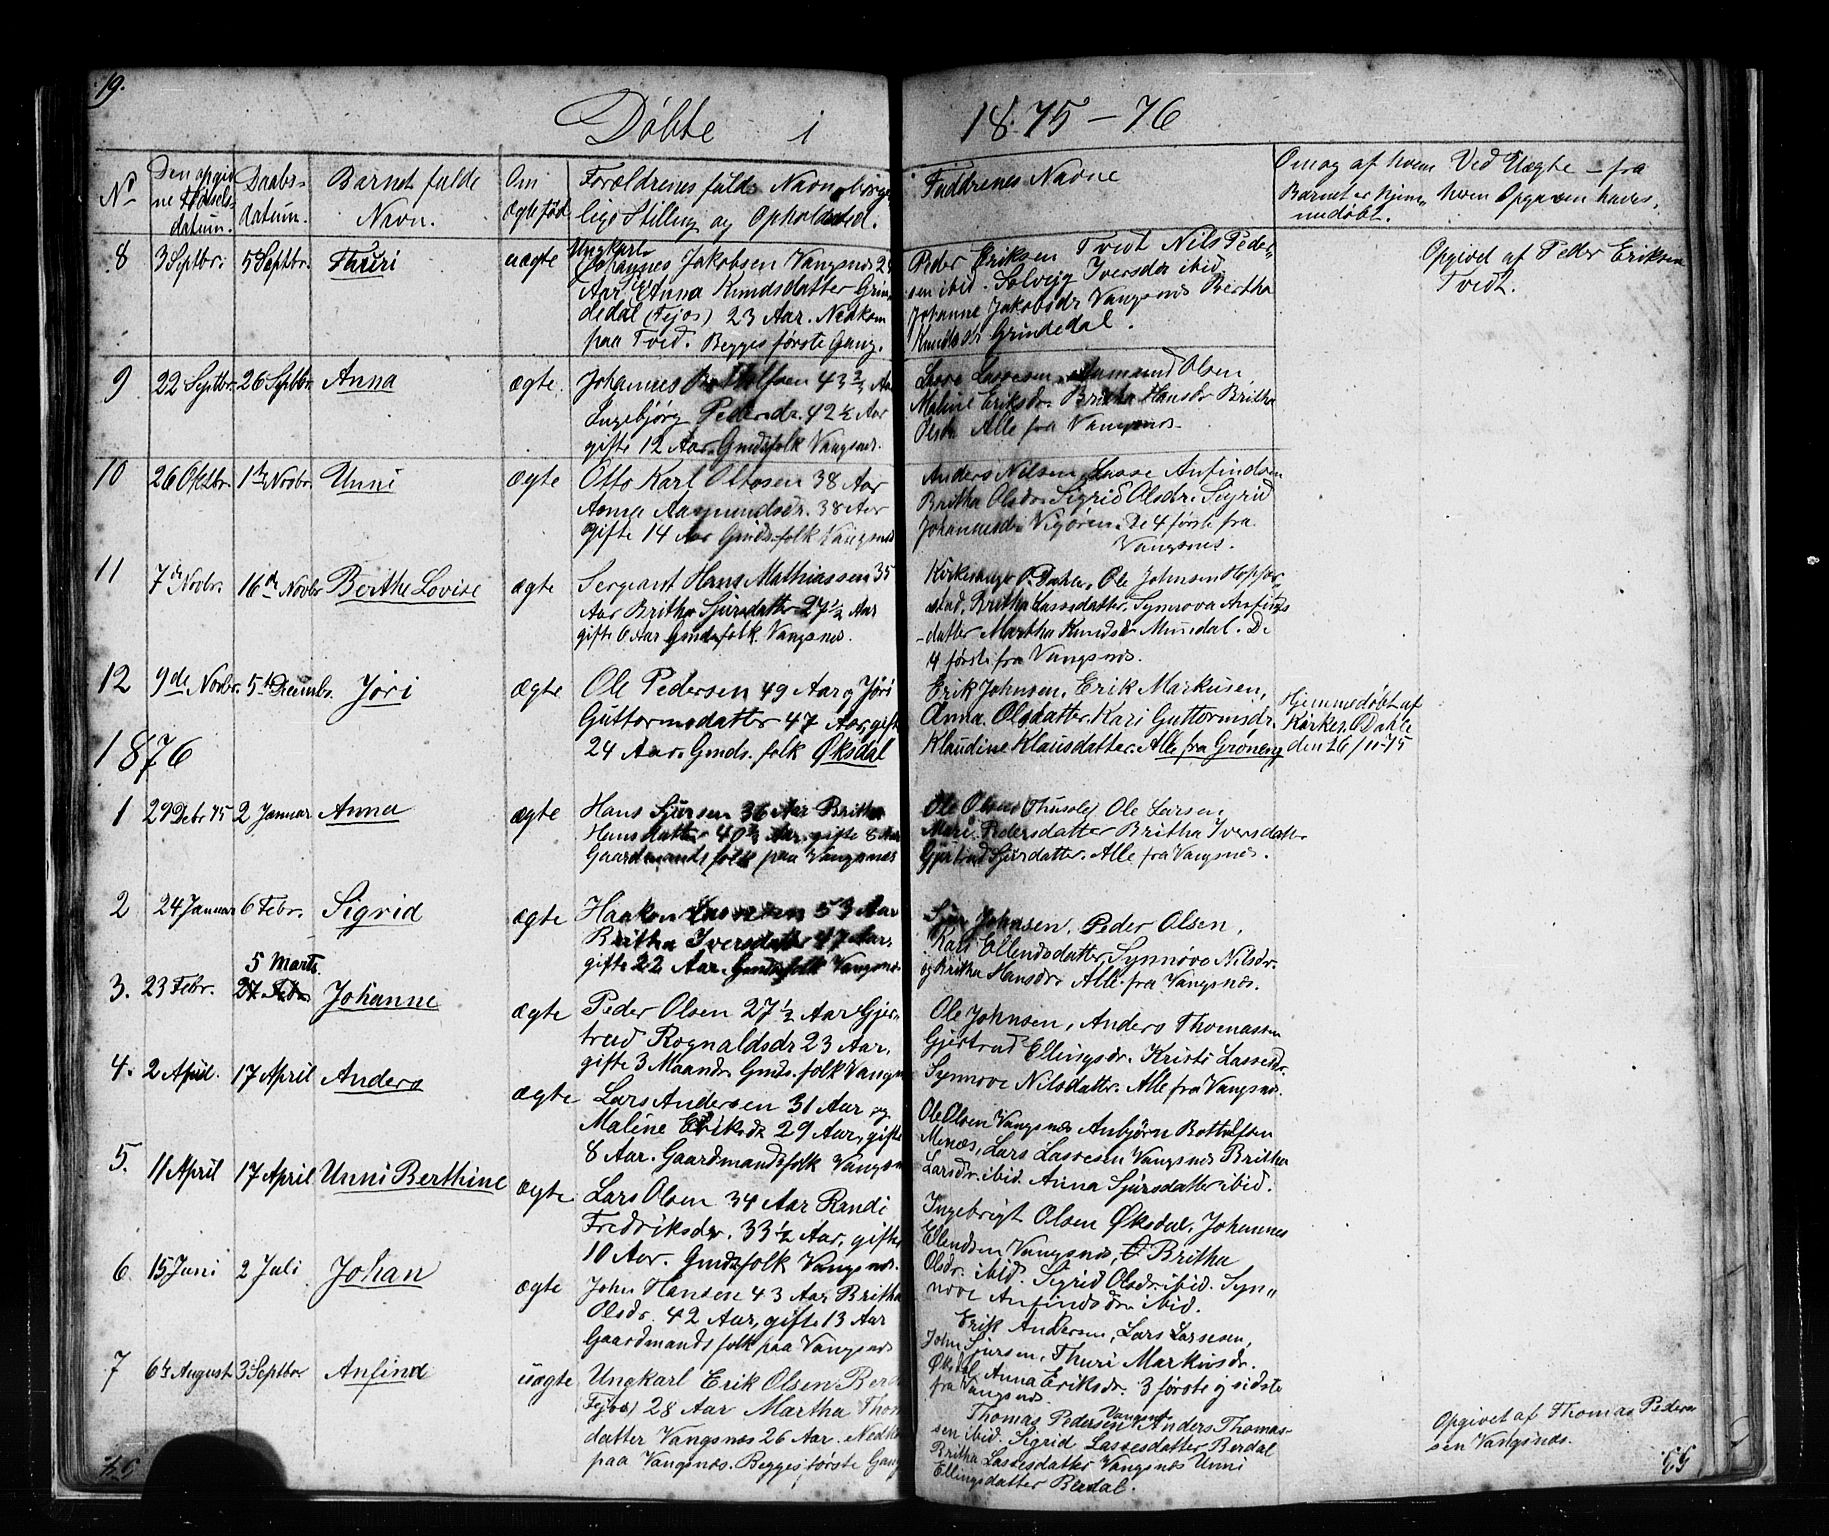 19.
Döbte i 1875-76
No
Den opgiv
ne Födsels-
datum.
Daabs-
datum.
Barnets fulde
Navn.
Om
ægte föd
Forældrenes fulde Navn, borger
lige Stilling og Opholdssted.
Faddrenes Navne
Om og af hvem
Barnet er hjem-
medöbt.
Ved Uægte - fra
hvem Opgaven haves.
8 3 Septbr. 5 Septbr. Thuri uægte
Ungkarl
Johannes Jakobsen Vangsnæs 2
Aar Anna Knudsdatter Grin
dedal (Fejos) 23 Aar. Nedkom
paa Tved. Begges förste Gang.
Peder Eriksen Tvedt Nils Peder
sen ibid. Solveig Iversdr ibid
Johanne Jakobsdr Vangsnæs Bertha
Knudsdr Grindedal.
Opgivet af Peder Eriksen
Tvedt.
9 22 Septbr. 26 Septbr. Anna ægte.
Johannes Bottolfsen 43 ½ Aar
Ingebjörg Pedersdr. 42 ½ Aar
gifte 12 Aar. Gmdsfolk Vangsnæs.
Lasse Lassesen, Aamund Olsen
Maline Eriksdr. Britha Hansdr Britha
Olsdr Alle fra Vangsnæs
10 26 Oktbr. 1te Novbr. Unni ægte
Otto Karl Ottosen 38 Aar
Anna Aamundsdr. 38 Aar
gifte 14 Aar Gmds.folk Vangsnæs
Anders Nilsen, Lasse Anfindsen
Britha Olsdr. Sigrid Olsdr. Sigrid
Johannesdr. Vigören. De 4 förste fra
Vangsnes.
11 7de Novbr. 16de Novbr Berthe Lovise ægte
Sergeant Hans Mathiassen 35
Aar Britha Sjursdatter 27½ Aar
gifte 6 Aar Gmdsfolk Vangsnæs.
Kirkesanger O. Dahle, Ole Johnsen Hopper
stad, Britha Lassedatter. Synnova Anfinds
-datter Martha Knudsdr Mundal. De
4 förste fra Vangsnæs.
12 9de Novbr. 5te Decembr. Jöri ægte
Ole Pedersen 49 Aar og Jöri
Guttormsdatter 47 Aar, gifte
24 Aar. Gmds. folk Öksdal
Erik Johnsen, Erik Markusen,
Anna Olsdatter. Kari Guttormsdr.
Klaudine Klausdatter. Alle fra Gröneng
Hjemmedöbt af
Kirkes. O Dahle
den 26/11-75
1876
1 29 Debr 75 2 Januar Anna ægte
Hans Sjursen 36 Aar Britha
Hansdatter 40½ Aar. gifte 8 Aar
Gaardmandsfolk paa Vangsnæs
Ole Olsen Ole Larsen
Mari Pedersdatter Britha Iversdatter
Gjertrud Sjursdatter. Alle fra Vangsnæs.
2 24 Januar 6 Febr. Sigrid ægte
Haakon Lassesen 53 Aar
Britha Iversdatter 47 Aar,
gifte 22 Aar. Gmdsfolk Vangsnæs
Sjur Johnsen, Peder Olsen,
Kari Ellendsdatter, Synnöve Nilsdr.
og Britha Hansdr. Alle fra Vangsnæs.
3. 23 Febr. 5 Marts 27 Febr Johanne ægte
Peder Olsen 27½ Aar Gjer-
trud Rognaldsdr 23 Aar,
gifte 3 Maander Gmds.folk Vangsn
Ole Johnsen, Anders Thomassen
Gjertrud Ellingsdr. Kristi Lassesdr.
Synnove Nilsdatter. Alle fra Vangsnæs.
4. 2 April. 17 April Anders ægte
Lars Andersen 31 Aar og
Maline Eriksdr 29 Aar, gifte
8 Aar. Gaardmandsfolk Vangsn
Ole Olsen Vangsnæs Anbjörn Bottolfsen
Menæs, Lars Lassesen Vangsnæs Britha
Larsdr. ibid. Anna Sjursdatter ibid.
5. 11 April 17 April Unni Berthine ægte
Lars Olsen 34 Aar Randi
Fredriksdr. 33½ Aar, gifte
10 Aar. Gmdsfolk Vangsnæs.
Ingebrigt Olsen Öksdal, Johannes
Ellendsen Vangsnæs, Britha
Olsdr. ibid. Sigrid Olsdr. ibid. Syn-
nove Anfindsdr. ibid.
6. 15 Juni 2 Juli Johan ægte
John Hansen 43 Aar Britha
Olsdr. 42 Aar, gifte 13 Aar
Gaardmandsfolk paa Vangsnæs
Erik Andersen, Lars Larsesen,
John Sjursen, Thuri Markusdr.
Öksdal, Anna Eriksdr. 3 förste og sidste
fra Vangsnæs
7 6te August 3 Septbr Anfind uægte
Ungkarl Erik Olsen Berd
Fejos) 28 Aar Martha Thom
datter Vangsnæs 26 Aar. Nedk
paa Vangsnæs. Begges förste Gang
Thomas Pedersen Vangsnæs Anders Thomas-
sen ibid. Sigrid Lassesdatter Berdal
Britha Lassesdatter Vangsnæs Unni
Ellingsdatter Berdal.
Opgivet af Thomas Peder
sen Vangsnæs.